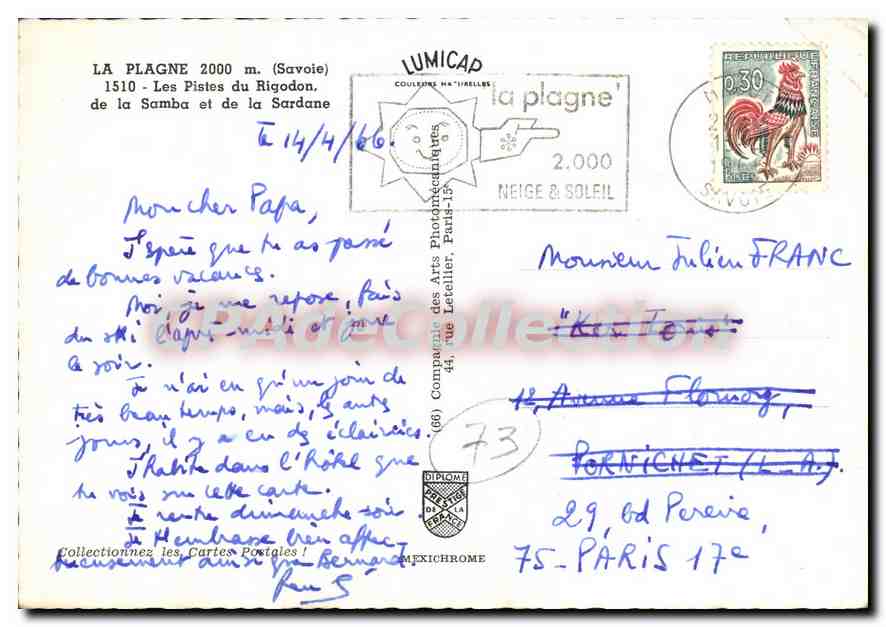 LA PLAGNE 2000 m. (Savoie)
1510 - Les Pistes du Rigodon,
de la Samba et de la Sardane
LUMICAP
COULEURS NATURELLES
la plagne
2.000
NEIGE & SOLEIL
REPUBLIQUE FRANÇAISE
0,30
POSTES
SAVOIE
le 14/4/66.
Mon cher Papa,
J'espère que tu as passé
de bonnes vacances.
Moi, je me repose, fais
du ski l'après-midi et joue
le soir.
Je n'ai eu qu'un jour de
très beau temps, mais, les autres
jours, il y a eu des éclaircies.
J'habite dans l'hôtel que
tu vois sur cette carte.
Je rentre dimanche soir.
Je t'embrasse bien affec-
tueusement ainsi que Bernard.
Collectionnez les Cartes Postales !
(66) Compagnie des Arts Photomécaniques
44, rue Letellier, Paris-15e
73
DIPLOME
PRESTIGE
DE LA
FRANCE
MEXICHROME
Monsieur Julien FRANC
"Ker
12, Avenue
PORNICHET (L-A).
29, bd Pereire,
75-PARIS 17e
CPAdeCollection